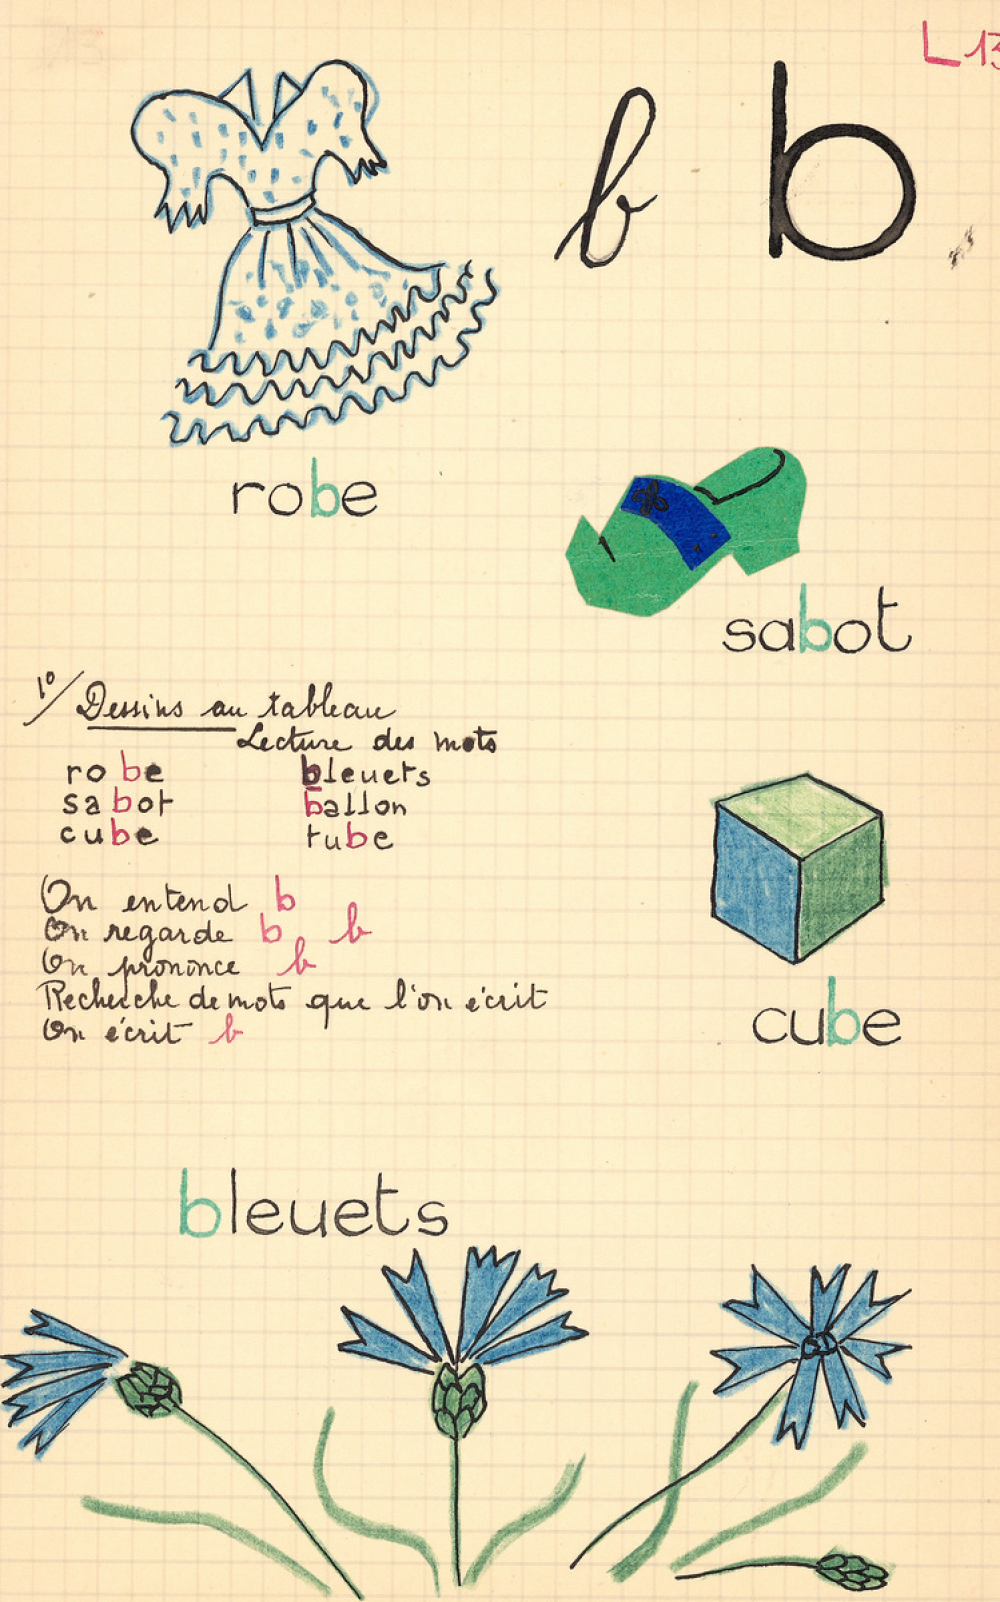 L 13
b b
robe
sabot
1º/ Dessins au tableau
Lecture des mots
robe bleuets
sabot ballon
cube tube
On entend b
On regarde b b
On prononce b
Recherche de mots que l'on écrit
On écrit b
cube
bleuets